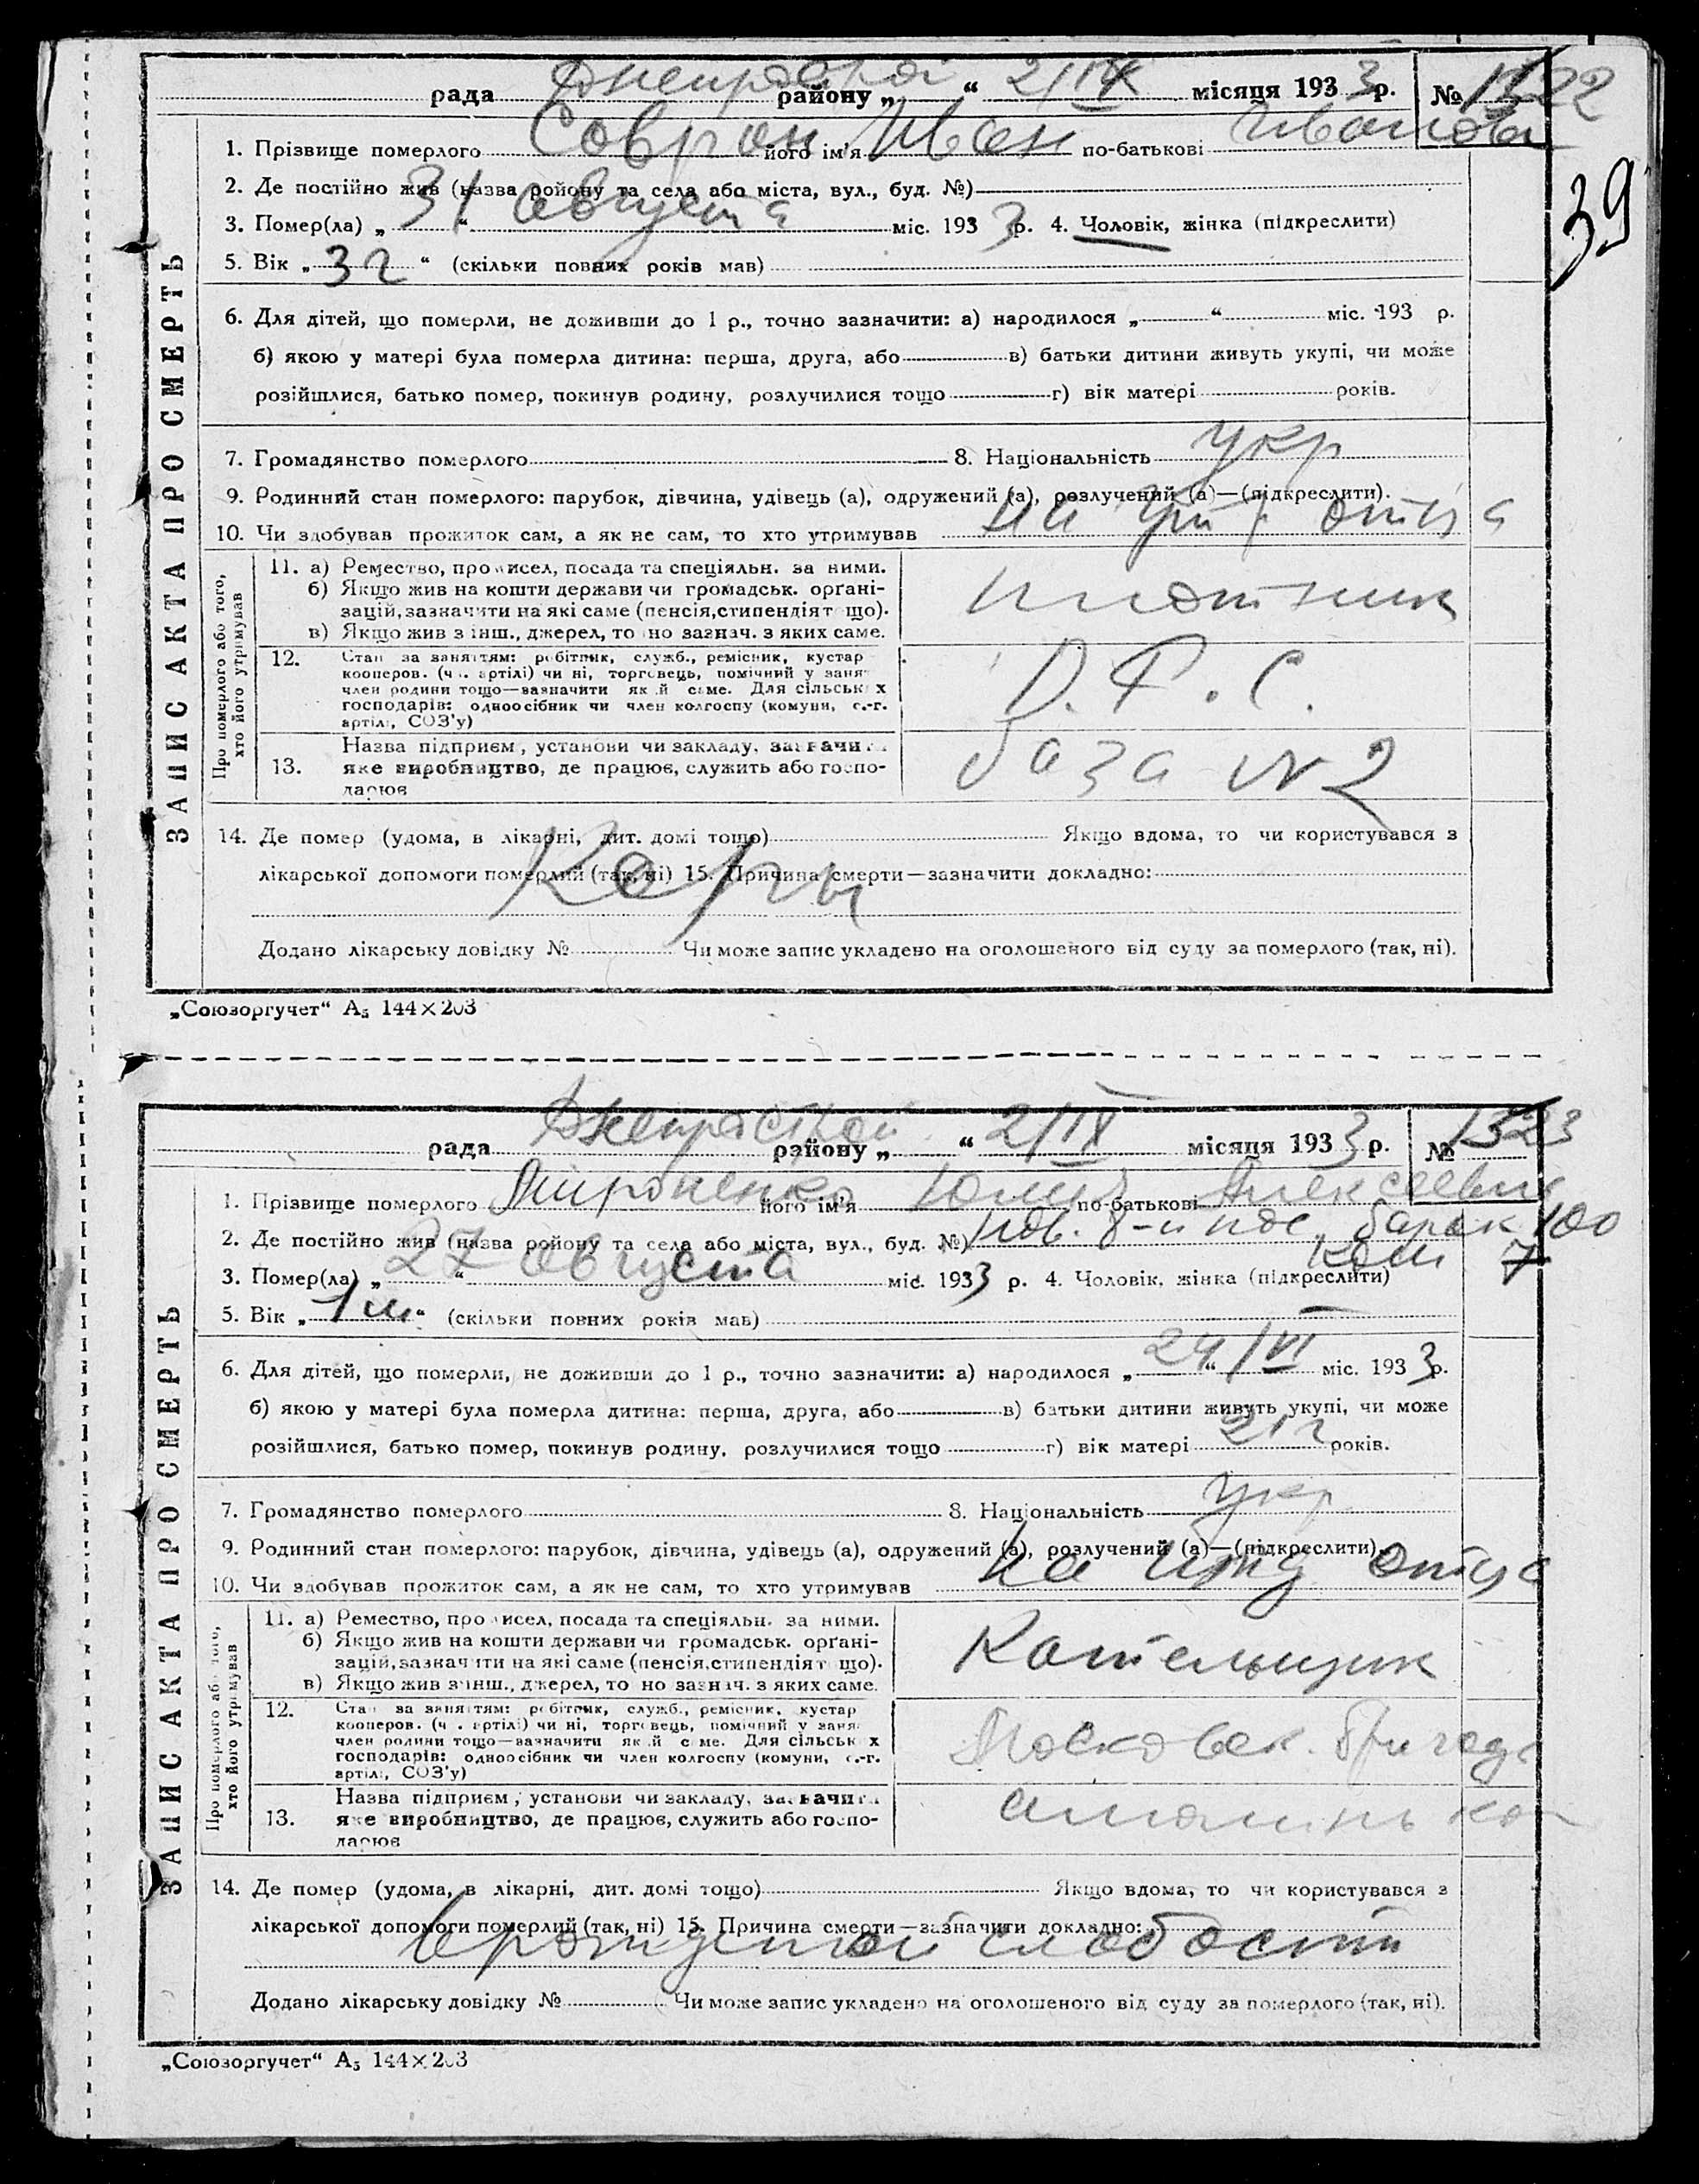 рада Днепрострой району „ “ 2/IX місяця 1933 р. № 1322
39
1. Прізвище померлого його ім'я Иван по-батькові Иванови
2. Де постійно жив (назва ройону та села або міста, вул., буд. №)
3. Помер(ла) „ 31 “ августа міс. 1933 р. 4. Чоловік, жінка (підкреслити)
5. Вік „ 3 г “ (скільки повних років мав)
6. Для дітей, що померли, не доживши до 1 р., точно зазначити: а) народилося „ “ міс. 193 р.
б) якою у матері була померла дитина: перша, друга, або в) батьки дитини живуть укупі, чи може
розійшлися, батько помер, покинув родину, розлучилися тощо г) вік матері років.
7. Громадянство померлого 8. Національність укр
9. Родинний стан померлого: парубок, дівчина, удівець (а), одружений (а), розлучений (а)—(підкреслити).
10. Чи здобував прожиток сам, а як не сам, то хто утримував на отца
ЗАПИС АКТА ПРО СМЕРТЬ
Про померлого або того, хто його утримував
11. а) Ремество, промисел, посада та спеціяльн. за ними.
б) Якщо жив на кошти держави чи громадськ. орґані-
зацій, зазначити на які саме (пенсія, стипендія тощо).
в) Якщо жив з інш., джерел, то но зазнач. з яких саме.
плотник
12. Стан за заняттям: робітник, служб., ремісник, кустар
кооперов. (ч. артілі) чи ні, торговець, помічний у заня
член родини тощо—зазначити який саме. Для сільських
господарів: одноосібник чи член колгоспу (комуни, с.-г.
артілі, СОЗ'у)
13. Назва підприєм., установи чи закладу, зазначити
яке виробництво, де працює, служить або госпо-
дарює
база №2
14. Де помер (удома, в лікарні, дит. домі тощо) Якщо вдома, то чи користувався з
лікарської допомоги померлий (так, ні) 15. Причина смерти—зазначити докладно:
Корь
Додано лікарську довідку № Чи може запис укладено на оголошеного від суду за померлого (так, ні).
„Союзоргучет“ А5 144×203
рада Днепрострой району „ “ 2/IX місяця 1933 р. № 1323
1. Прізвище померлого Мироненко його ім'я Юлий по-батькові Алексеевич
2. Де постійно жив (назва ройону та села або міста, вул., буд. №) пос. барак 100
ком 7
3. Помер(ла) „ 27 “ августа міс. 1933 р. 4. Чоловік, жінка (підкреслити)
5. Вік „ 1 м “ (скільки повних років мав)
6. Для дітей, що померли, не доживши до 1 р., точно зазначити: а) народилося „ 24 “ /VI міс. 1933 р.
б) якою у матері була померла дитина: перша, друга, або в) батьки дитини живуть укупі, чи може
розійшлися, батько помер, покинув родину, розлучилися тощо г) вік матері 21 г років.
7. Громадянство померлого 8. Національність укр
9. Родинний стан померлого: парубок, дівчина, удівець (а), одружений (а), розлучений (а)—(підкреслити).
10. Чи здобував прожиток сам, а як не сам, то хто утримував на ижд отца
ЗАПИС АКТА ПРО СМЕРТЬ
Про померлого або того, хто його утримував
11. а) Ремество, промисел, посада та спеціяльн. за ними.
б) Якщо жив на кошти держави чи громадськ. орґані-
зацій, зазначити на які саме (пенсія, стипендія тощо).
в) Якщо жив з інш., джерел, то но зазнач. з яких саме.
Котельщик
12. Стан за заняттям: робітник, служб., ремісник, кустар
кооперов. (ч. артілі) чи ні, торговець, помічний у заня
член родини тощо—зазначити який саме. Для сільських
господарів: одноосібник чи член колгоспу (комуни, с.-г.
артілі, СОЗ'у)
Московск. бригада
13. Назва підприєм., установи чи закладу, зазначити
яке виробництво, де працює, служить або госпо-
дарює
14. Де помер (удома, в лікарні, дит. домі тощо) Якщо вдома, то чи користувався з
лікарської допомоги померлий (так, ні) 15. Причина смерти—зазначити докладно:
врожденной слабости
Додано лікарську довідку № Чи може запис укладено на оголошеного від суду за померлого (так, ні).
„Союзоргучет“ А5 144×203